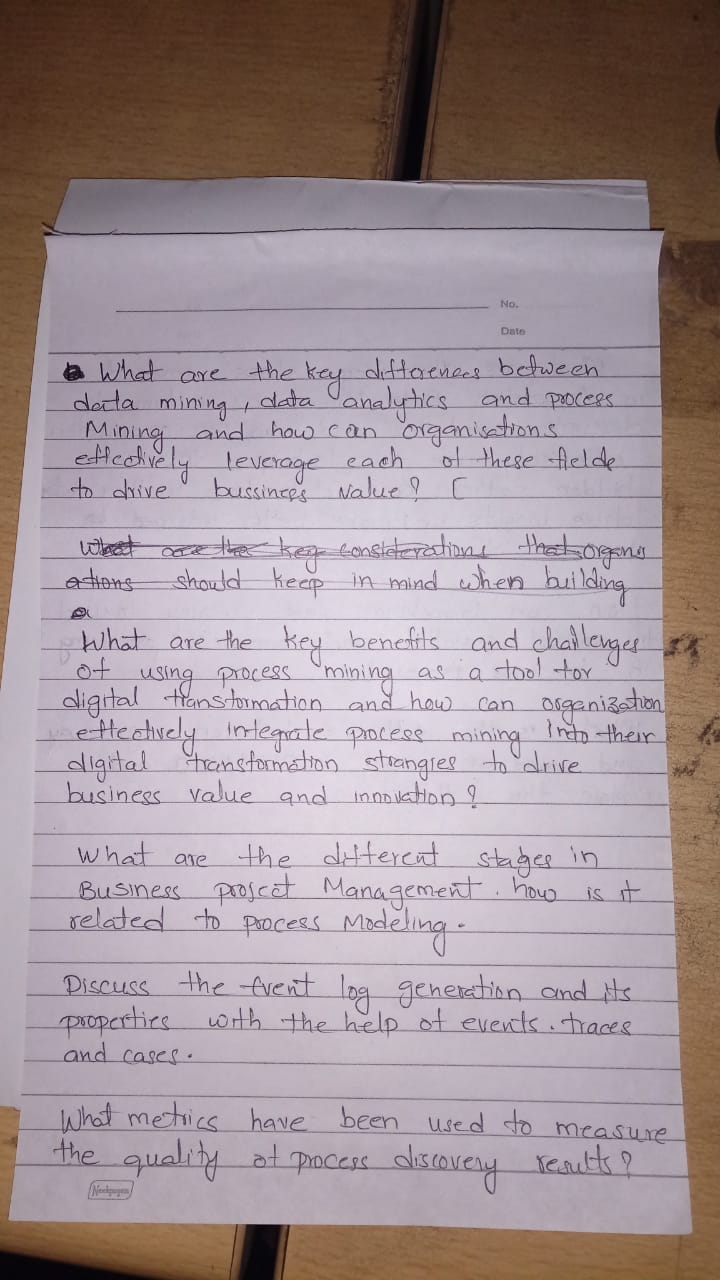 No.
Date
What are the key differences between
data mining, data analytics and process
Mining and how can organisations
effectively leverage each of these fielde
to drive bussiness value? [
What are the key considerations that organis
ations should keep in mind when building
a
What are the key benefits and challenges
of using process mining as a tool for
digital transformation and how can organization
effectively integrate process mining Into their
digital transformation strangies to drive
business value and innovation?
What are the different stages in
Business project Management. how is it
related to process Modeling.
Discuss the Event log generation and its
properties with the help of events. traces
and cases.
What metrics have been used to measure
the quality of process discovery results?